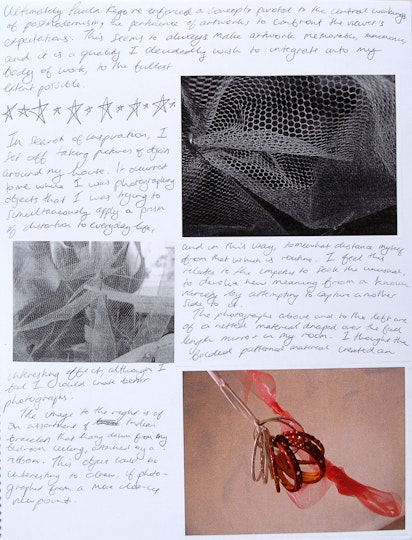 Ultimately Paula Rego re enforced a concepts pivotal to the central workings
of postmodernism the pertinence of artworks to confront the viewer's
expectations. This seems to always make artwork memorable,
and it is a quality I decidedly wish to integrate into my
body of work, to the fullest
extent possible.
In search of inspiration, I
set off taking pictures of objects
around my house. It occurred
to me while I was photographing
objects that I was trying to
simultaneously apply a prism
of distortion to everyday life,
and in this way, somewhat distance myself
from that which is routine. I feel this
relates to the impulse to seek the unusual,
to devolve new meaning from a known
variety by attempting to capture another
side to it.
The photographs above and to the left are
of a netted material draped over the full
length mirror in my room. I thought the
folded patterned material created an
interesting effect, although I
feel I could create better
photographs.
The image to the right is of
an assortment of Indian
bracelets that hang down from my
bedroom ceiling, attached by a
ribbon. This object could be
interesting to draw, if photo-
graphed from a more close-up
viewpoint.